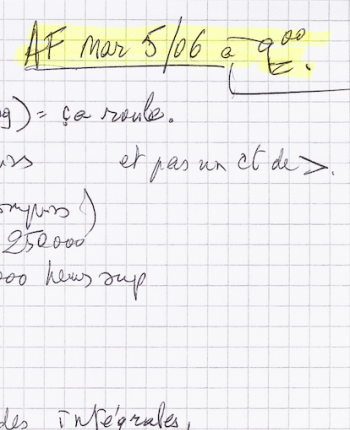 AF mar 5/06 à 9⁰⁰
) = ça roule.
et pas un ct de >.
250000
000 heures sup
des intégrales,